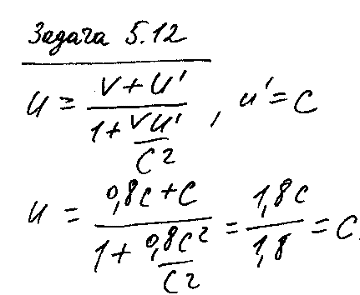 Задача 5.12
u = (v + u') / (1 + vu'/c²), u' = c
u = (0,8c + c) / (1 + 0,8c²/c²) = 1,8c / 1,8 = c.